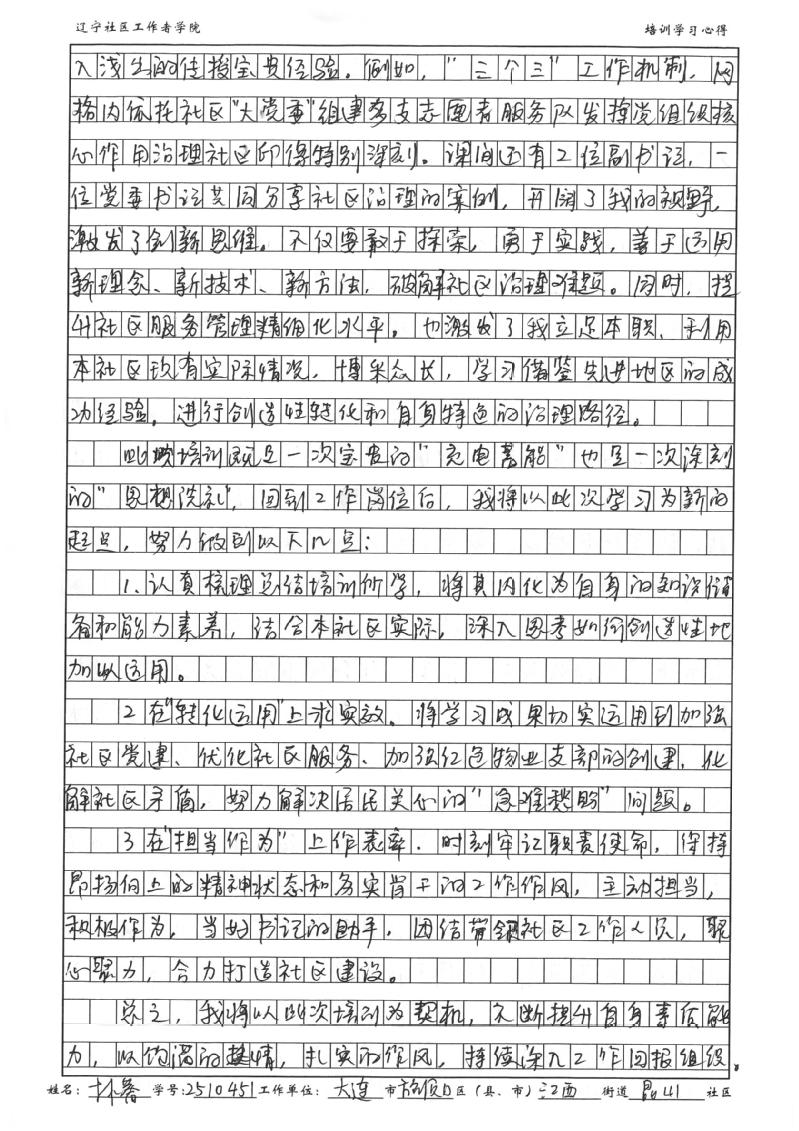 辽宁社区工作者学院 培训学习心得
入浅出的传授宝贵经验。例如，“三个三”工作机制，网
格内依托社区“大党委”组建多支志愿者服务队发挥党组织核
心作用治理社区印得特别深刻。课间还有2位副书记，一
位党委书记共同分享社区治理的案例，开阔了我的视野，
激发了创新思维。不仅要敢于探索，勇于实践，善于运用
新理念、新技术、新方法，破解社区治理难题。同时，提
升社区服务管理精细化水平。也激发了我立足本职、利用
本社区现有实际情况，博采众长，学习借鉴先进地区的成
功经验，进行创造性转化和自身特色的治理路径。
此次培训既是一次宝贵的“充电蓄能”也是一次深刻
的“思想洗礼”，回到工作岗位后，我将以此次学习为新的
起点，努力做到以下几点：
1.认真梳理总结培训所学，将其内化为自身的知识储
备和能力素养，结合本社区实际，深入思考如何创造性地
加以运用。
2在“转化运用”上求实效。将学习成果切实运用到加强
社区党建、优化社区服务、加强红色物业支部的创建，化
解社区矛盾，努力解决居民关心的“急难愁盼”问题。
3在“担当作为”上作表率．时刻牢记职责使命，保持
昂扬向上的精神状态和务实肯干的工作作风，主动担当，
积极作为，当好书记的助手，团结带领社区工作人员，聚
心聚力，合力打造社区建设。
总之，我将以此次培训为契机，不断提升自身素质能
力，以饱满的热情，扎实的作风，持续深入工作回报组织。
姓名：林 学号：2510451工作单位：大连市旅顺口区（县、市）江西街道 社区